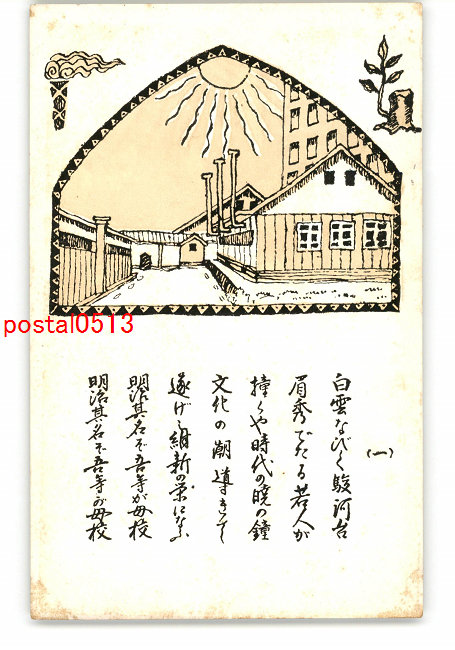 postal0513
(一)
白雲なびく駿河台
眉秀でたる若人が
撞くや時代の暁の鐘
文化の潮導きて
遂げし維新の栄になふ
明治其名ぞ吾等が母校
明治其名ぞ吾等が母校